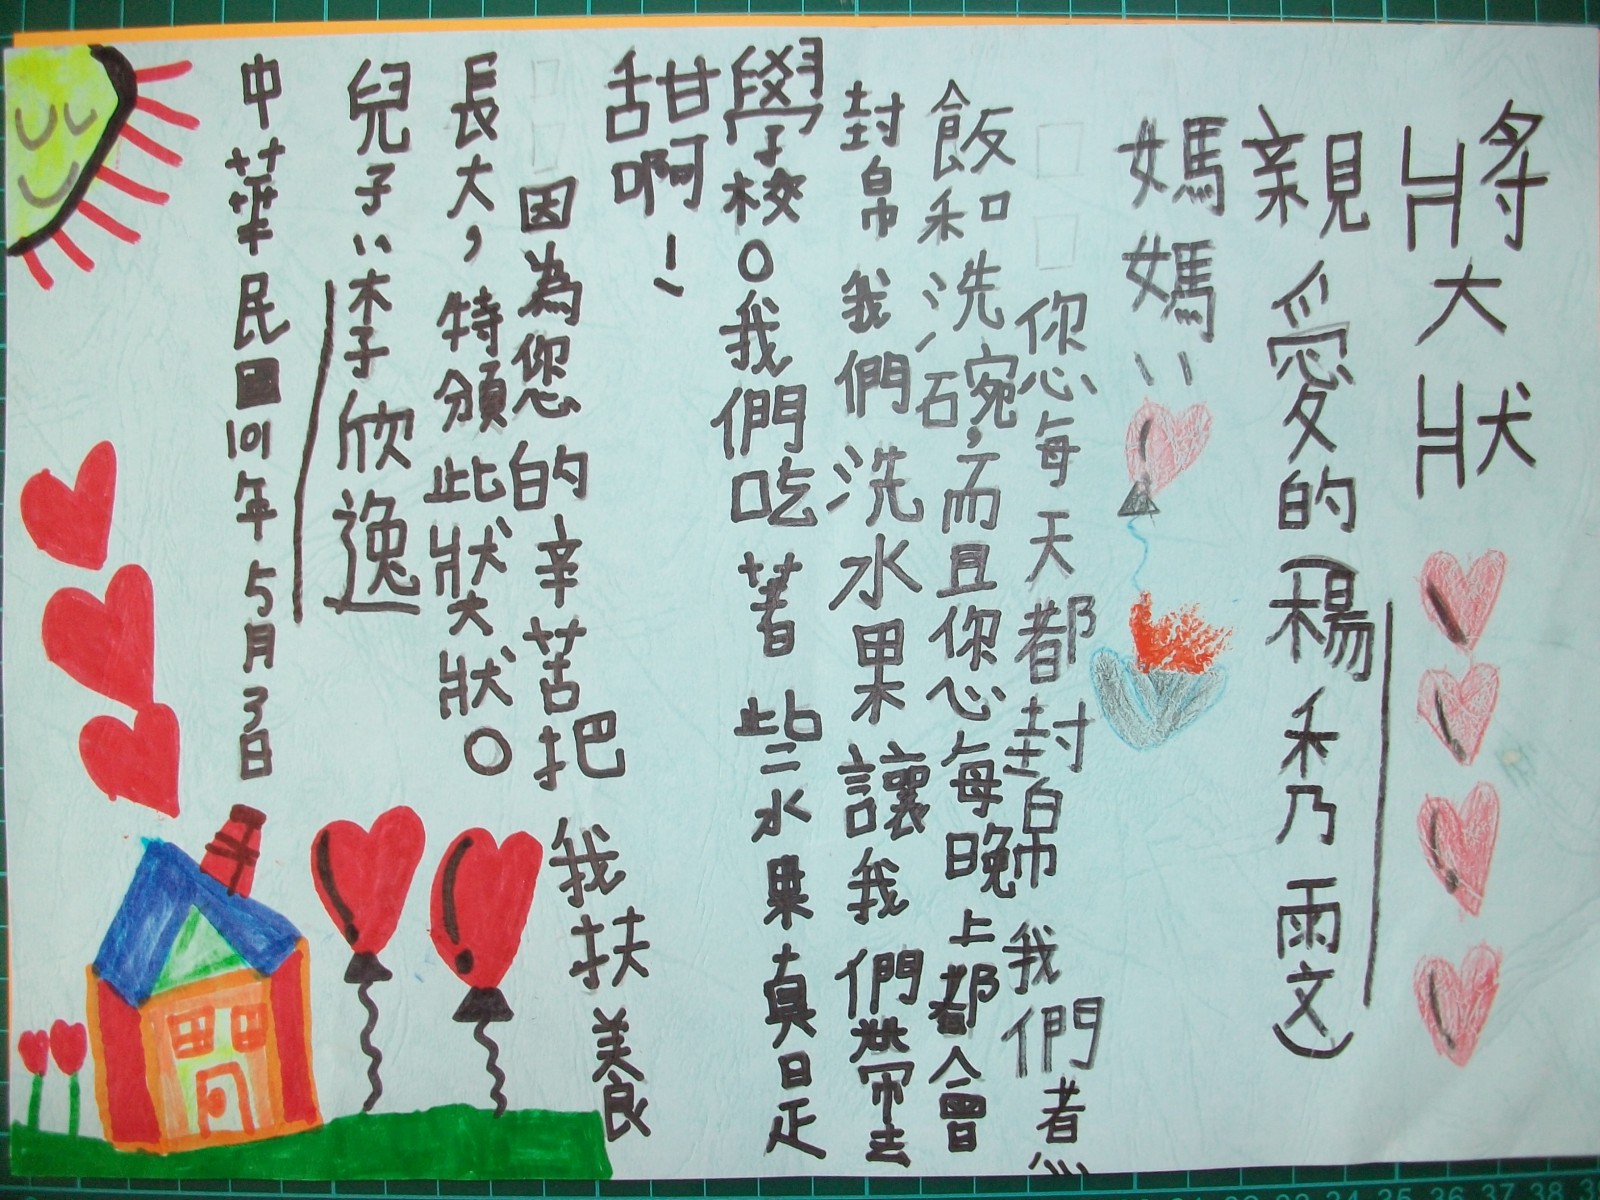 獎狀
親愛的(楊秀雯)
媽媽：
你您每天都幫我們煮
飯和洗碗，而且你您每晚上都會
幫我們洗水果讓我們帶去
學校。我們吃著些水果真是
甜啊！
因為您的辛苦把我扶養
長大，特頒此獎狀。
兒子：李欣逸
中華民國101年5月3日